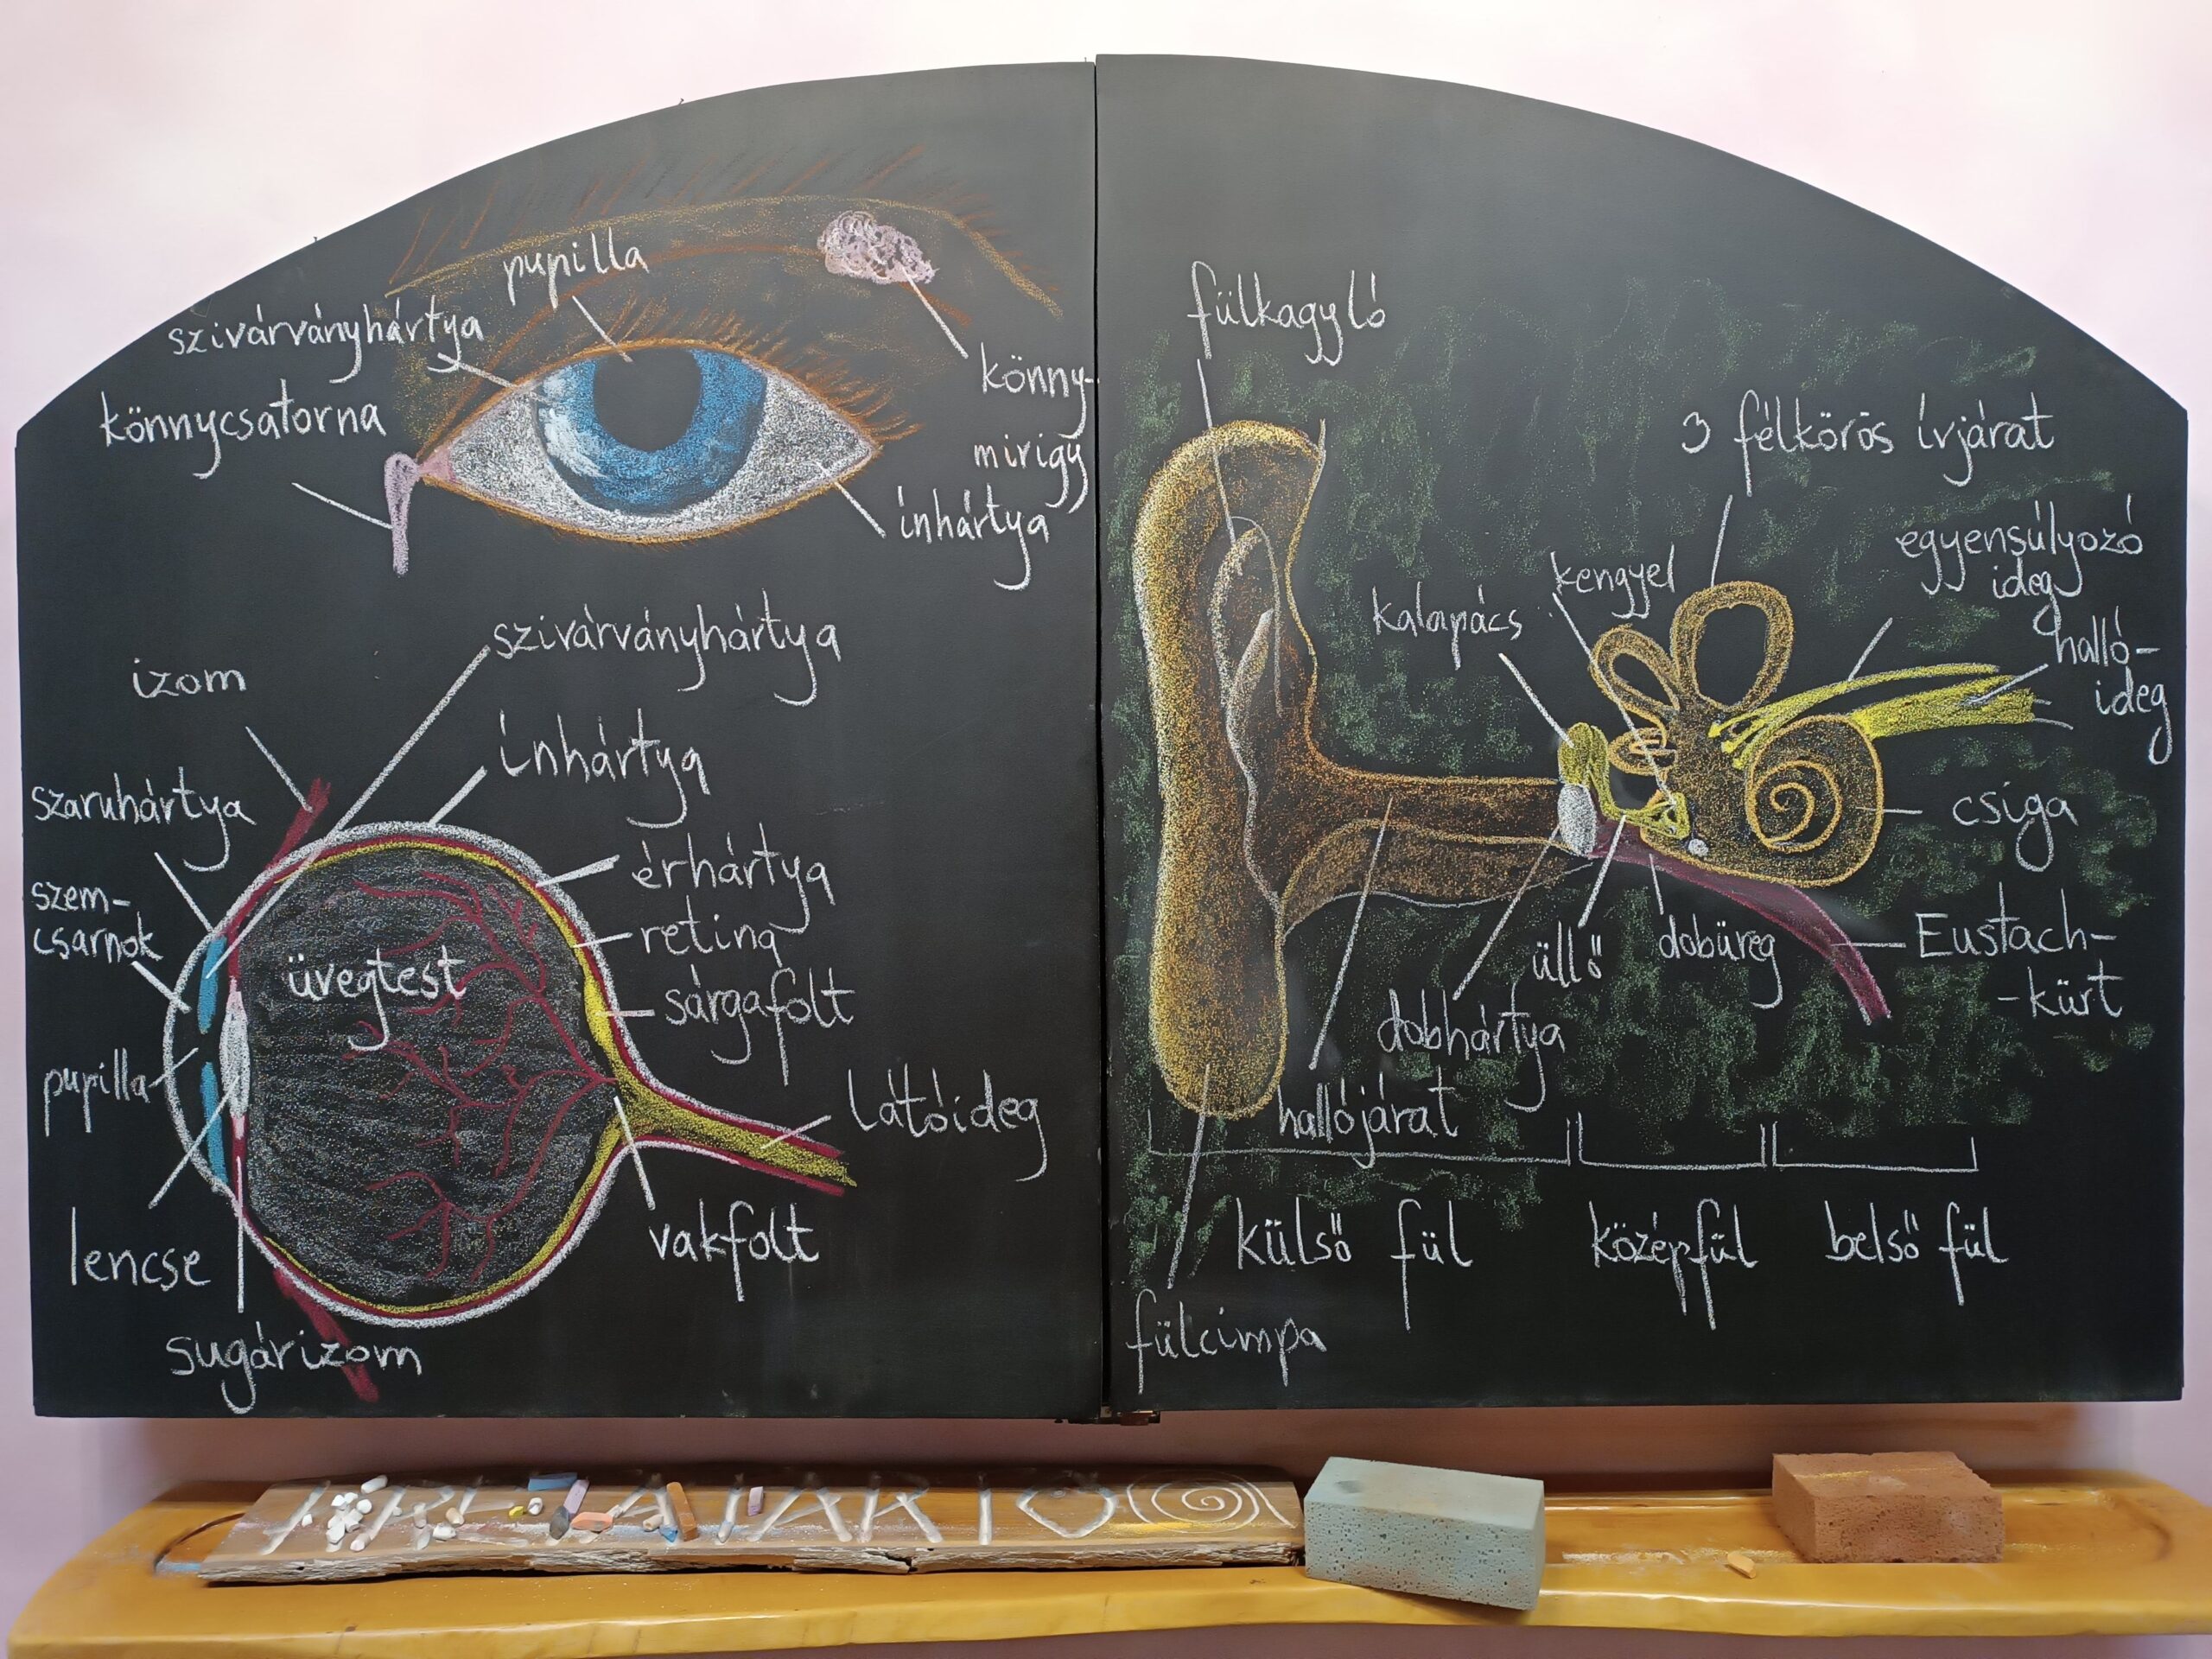 pupilla
szivárványhártya
könnycsatorna
könny-
mirigy
ínhártya
szivárványhártya
izom
ínhártya
szaruhártya
érhártya
szem-
csarnok
retina
üvegtest
sárgafolt
pupilla
látóideg
lencse
vakfolt
sugárizom
fülkagyló
3 félkörös ívjárat
egyensúlyozó
ideg
kengyel
kalapács
halló-
ideg
csiga
Eustach-
-kürt
üllő
dobüreg
dobhártya
hallójárat
külső fül
középfül
belső fül
fülcimpa